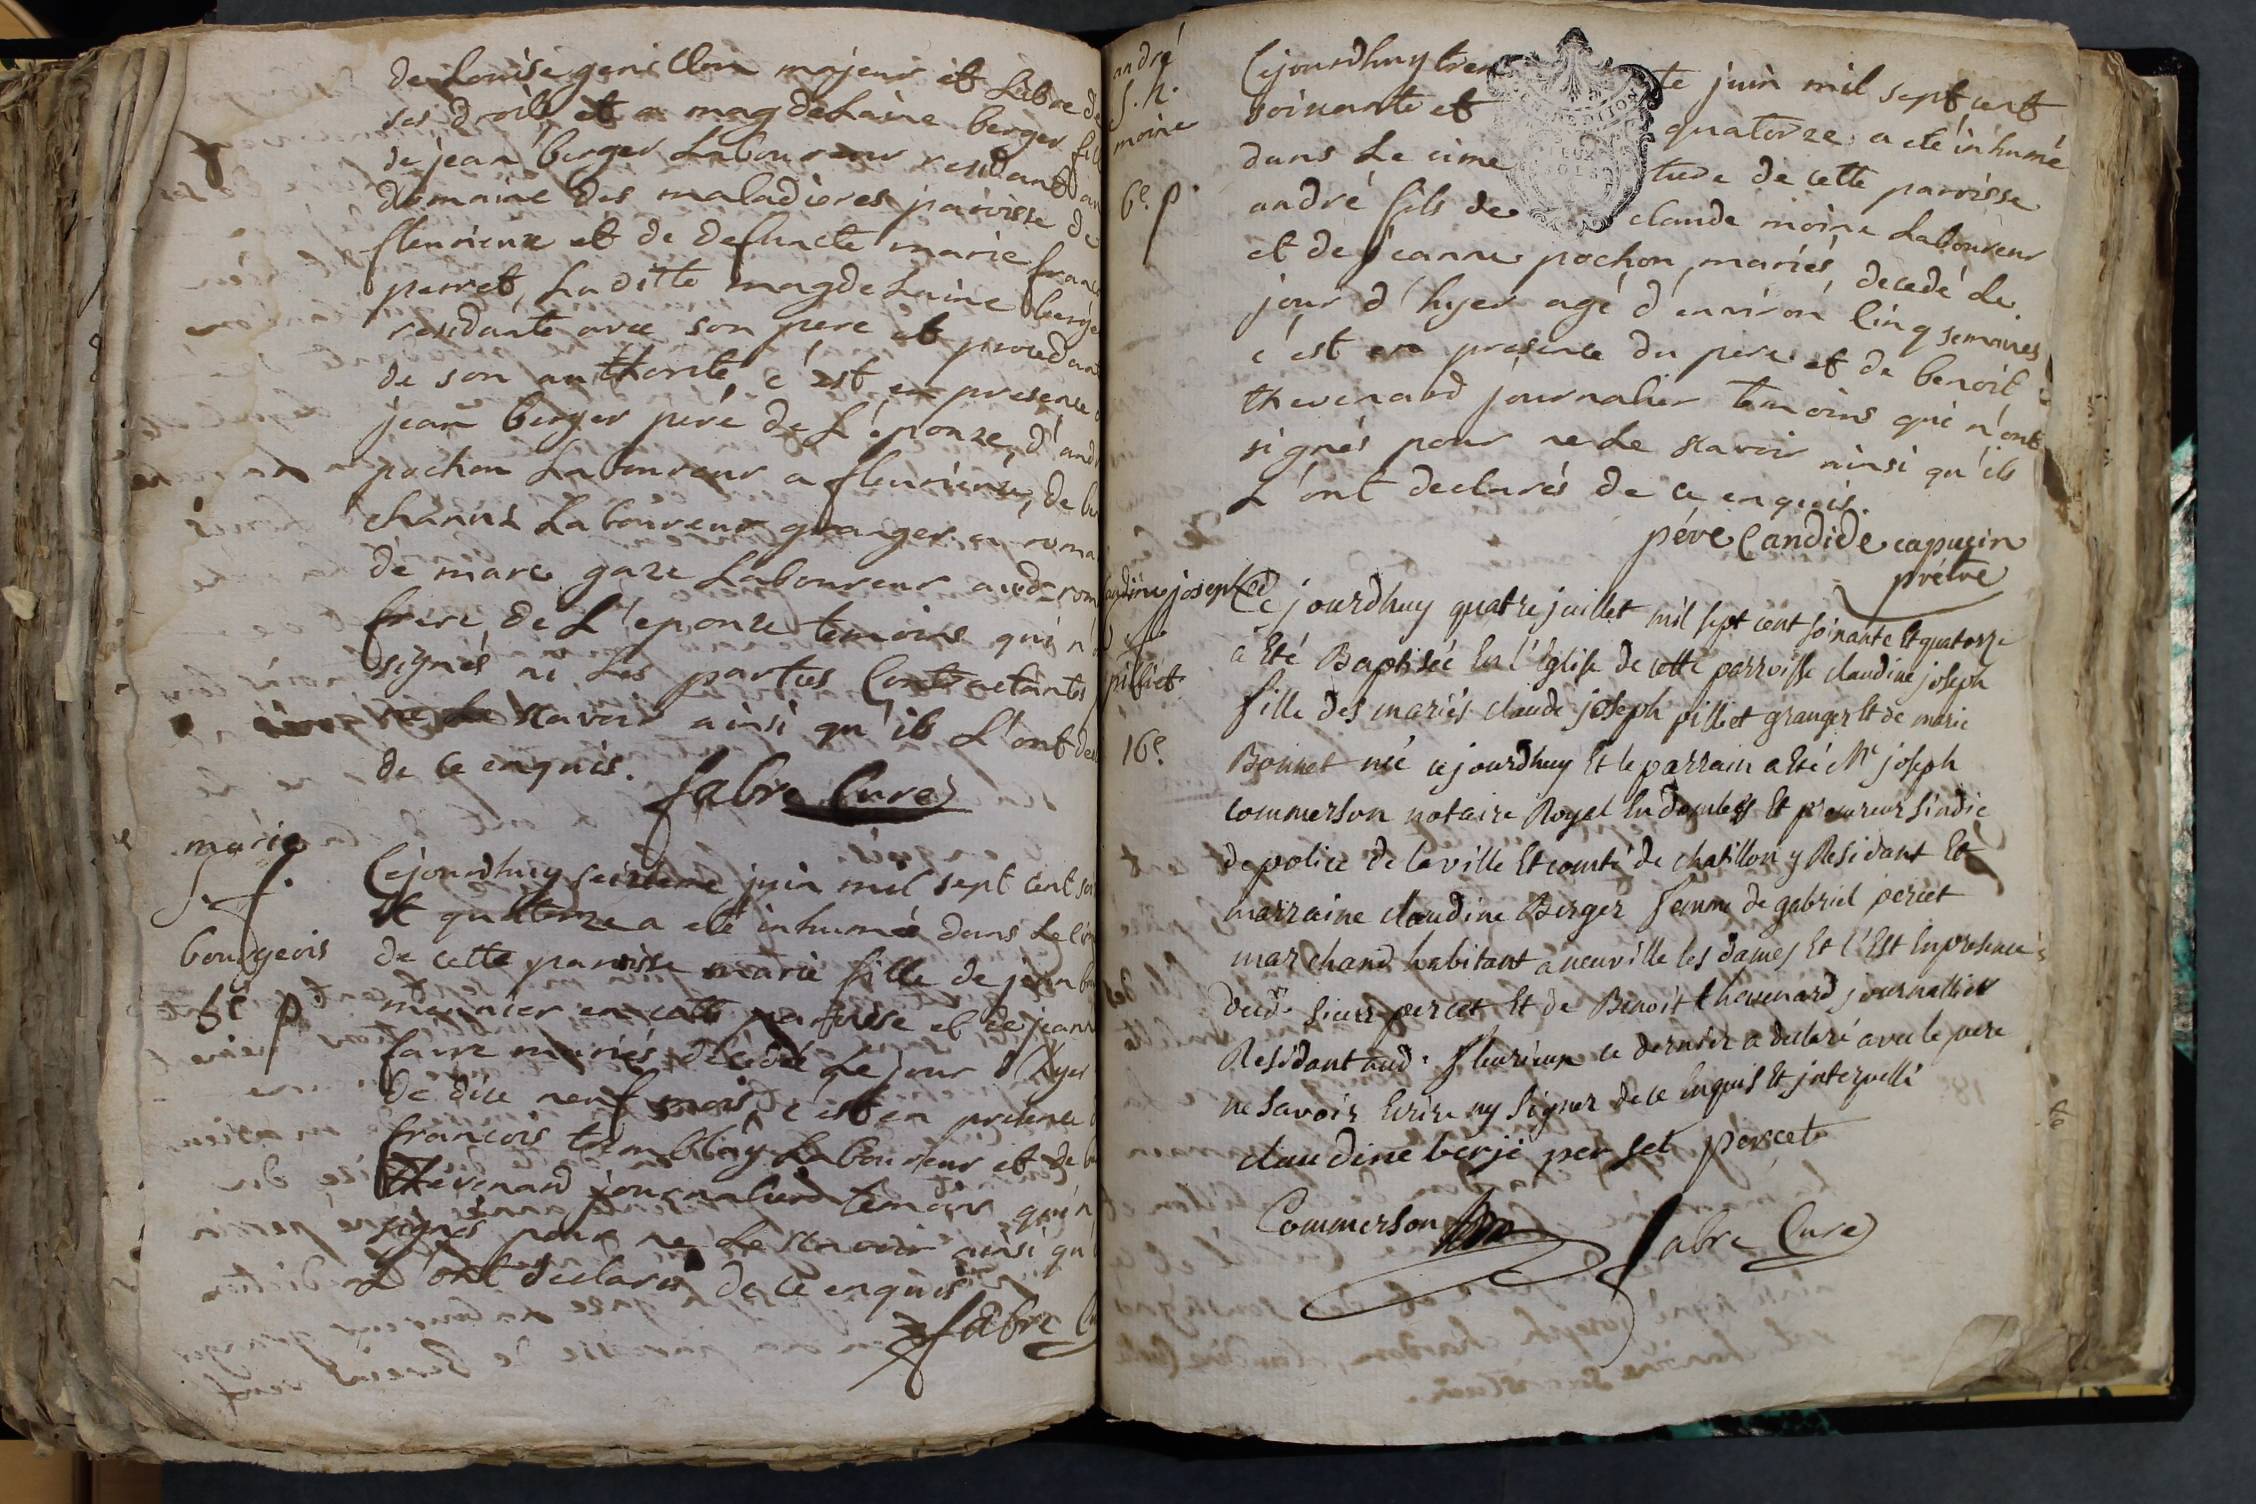 de Louise genillon majeur et Libre de
ses droits et a magdeLaine berger fil
de jean berger Laboureur residant au
domaine des maladieres paroisse de
fleurieux et de defuncte marie france
perret, La ditte magdeLaine berge
residante avec son pere et procedant
de son authorité c'est en presence d
jean berger peré de L'éponze, d'and
pochon Laboureur a fleurieux, de be
Laboureur granger a roma
de marc gaze Laboureur aud. rom
frere de L'eponze temoins qui n'
signés ni Les parties Contractantes
ne Le scavoir ainsi qu'ils L'ont de
de ce enquis.
fabre Curé
marie
f.
bourgeois
Cejourdhuy seizieme juin mil sept cent soi
et quatorze a eté inhumée dans Le cim
de cette paroisse marie fille de jean bo
meunier en cette paroisse et de jeann
faure mariés décédée Le jour d'hyer
de dix neuf mois, c'est en presence d
francois tremblay Laboureur et de be
thévenard journaliers temoins qui n'
signés pour ne Le scavoir ainsi qu'
L'ont déclarés de ce enquis
fabre Cu
andré
f. h.
moine
6e. p.
Cejourdhuy trente juin mil sept cent
soixante et quatorze a eté inhumé
dans Le cimetude de cette paroisse
andré fils de claude moine Laboureur
et de jeanne pochon mariés, decedé Le
jour d'hyer agé d'environ Cinq semaines
c'est en presence du pere et de benoit
thevenard journalier temoins qui n'ont
signés pour ne Le scavoir ainsi qu'ils
L'ont declarés de ce enquis.
pére Candide capucin
prétre
audine joseph
f
pilliet
16e.
Ce jourdhuy quatre juillet mil sept cent soixante Et quatorze
a Eté Baptisée En l'Eglise de cette parroisse claudine joseph
fille des mariés claude joseph pilliet granger Et de marie
Bonnet née cejourdhuy Et le parrain a Eté Mr joseph
commerson notaire Royal En dombes Et procureur sindic
de police de la ville Et comté de chatillon y Residant Et
marraine claudine Berger femme de gabriel percet
marchand habitant a neuville les dames Et c'Est En presence
dud. sieur percet Et de Benoit thevenard journallier
Residant aud. fleurieux ce dernier a declaré avec le pere
ne savoir Ecrire ny signer de ce Enquis Et interpellé
claudine berjé per set percet
Commerson
fabre Curé